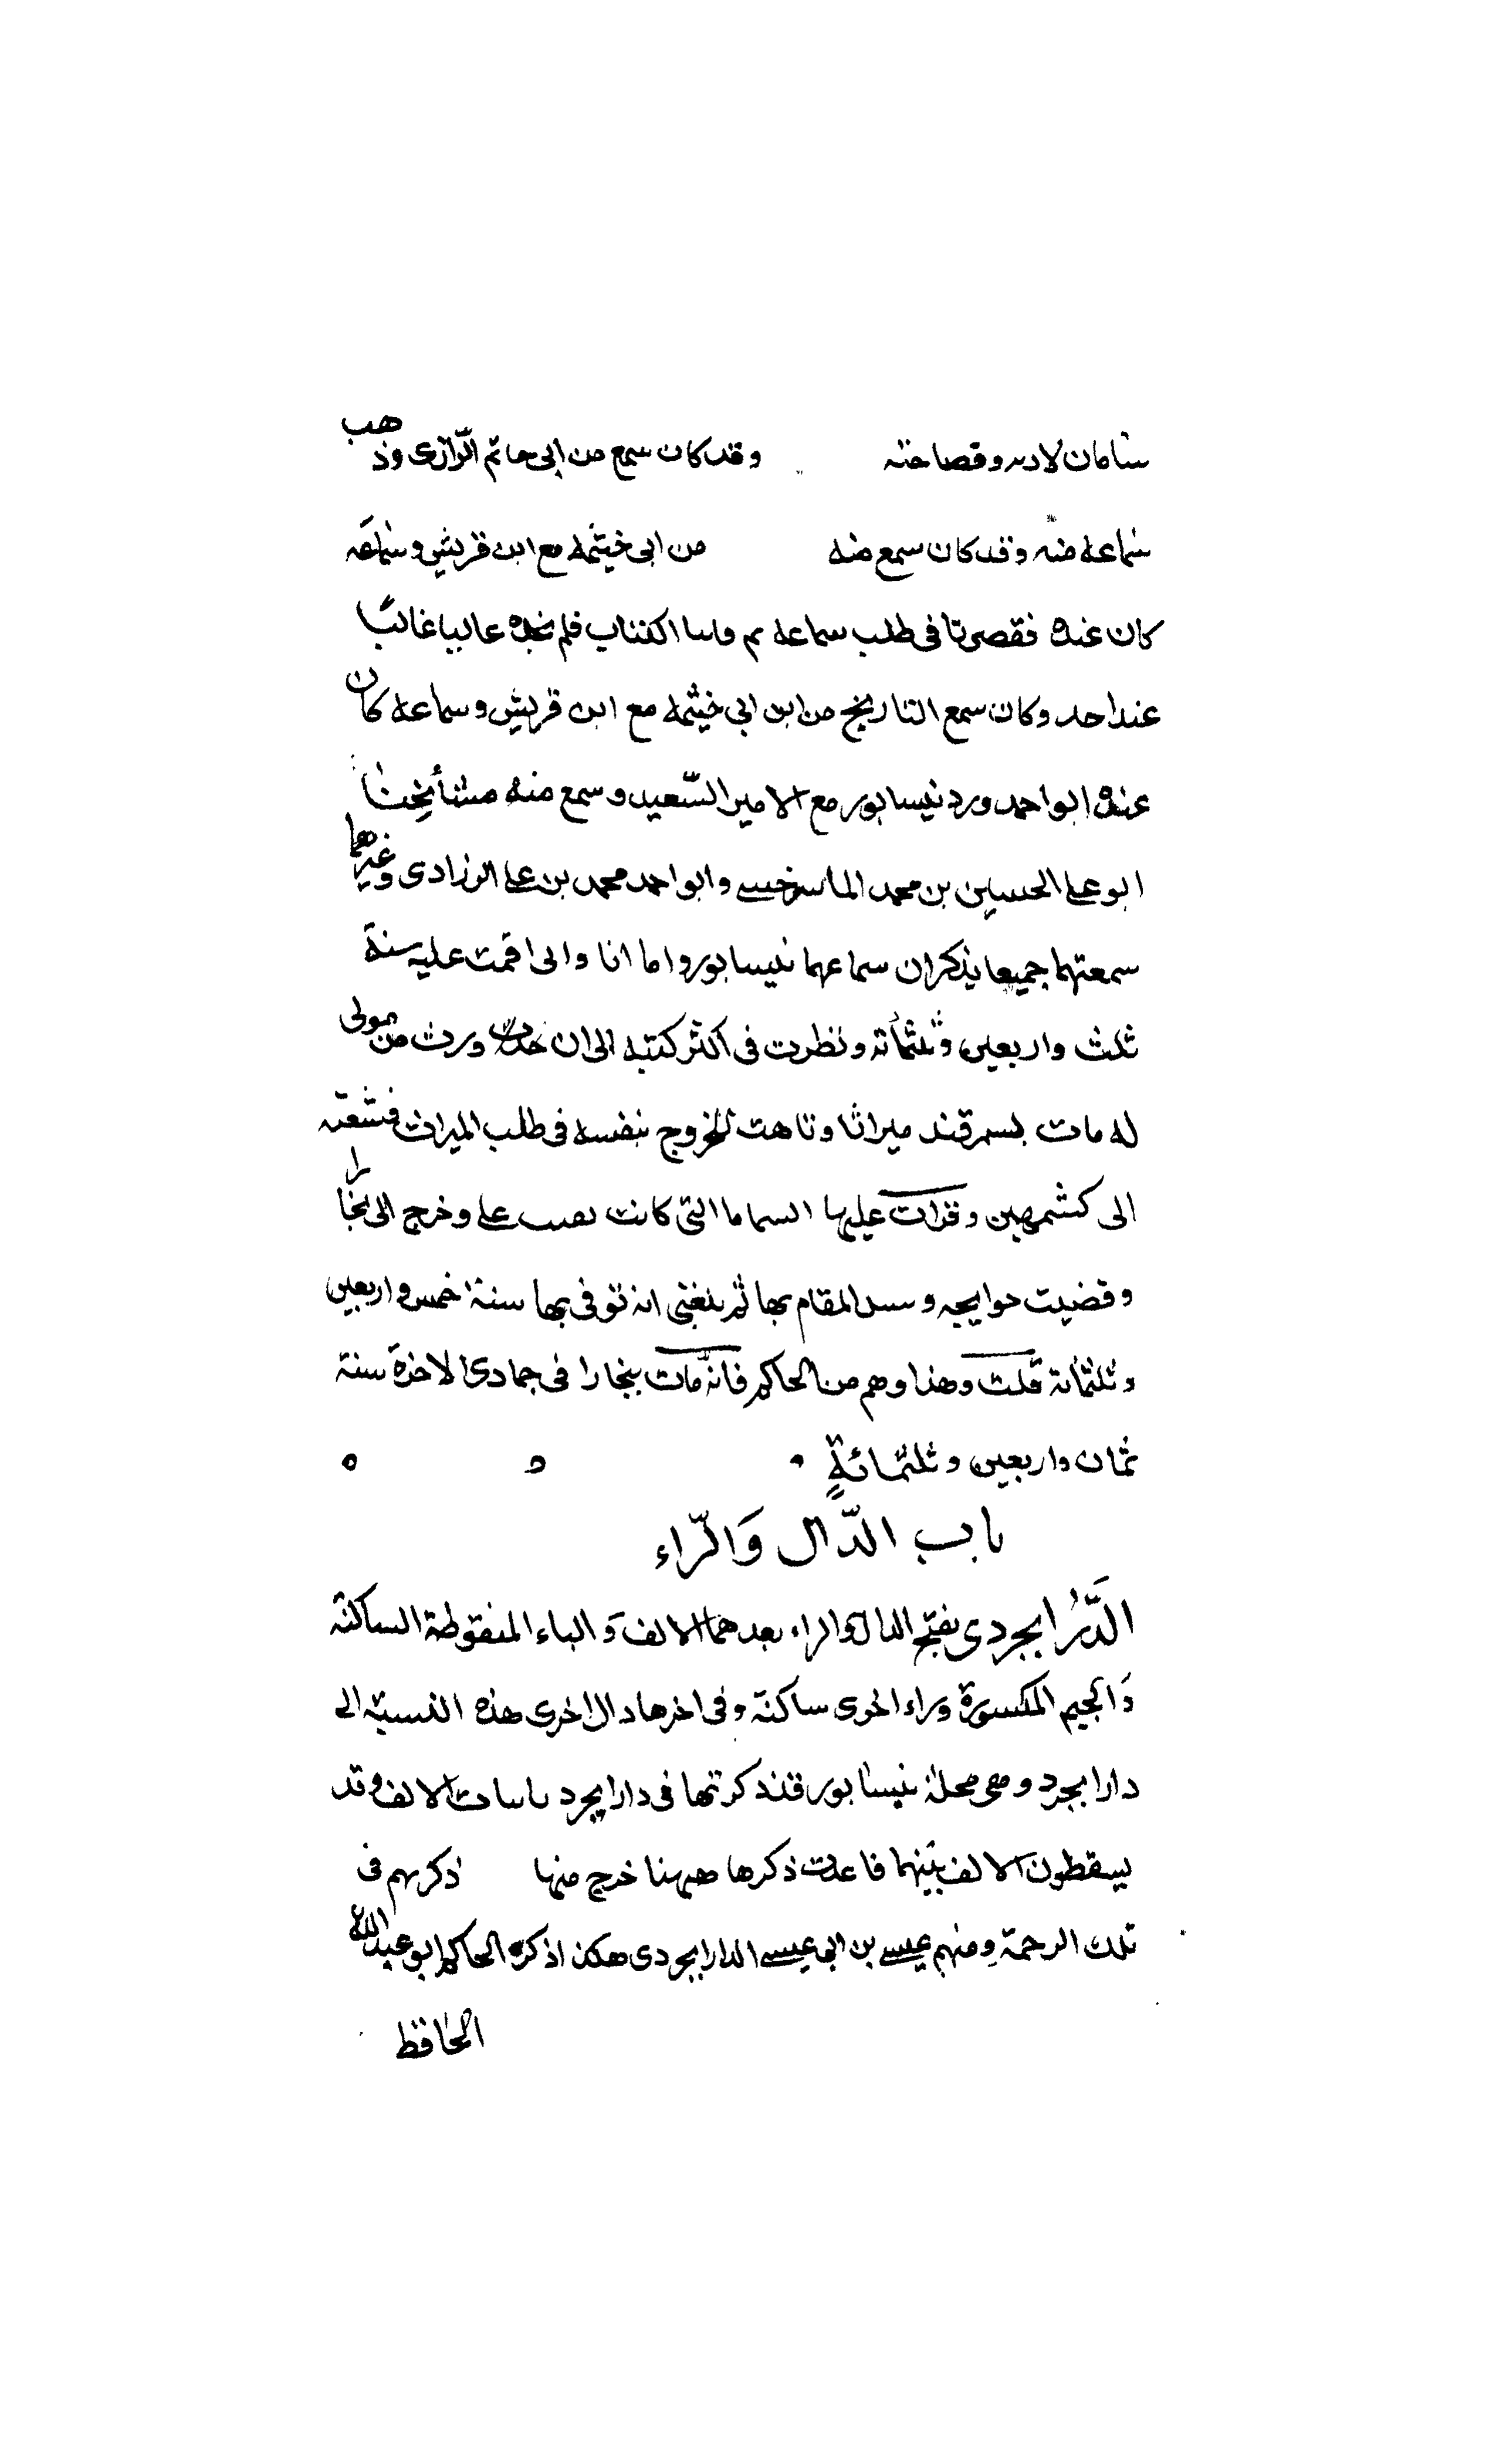 سامان لادبه وفصاحته وقد كان سمع من ابى حاتم الرّازى وذهب
سماعه منه وقد كان سمع منه من ابى خيثمه مع ابن قريش وسماعه
كان عنده فقصرنا فى طلب سماعه الكتاب فلم نجده عاليا غالبًا
عند احد وكان سمع التاريخ من ابن ابى خيثمه مع ابن قريش وسماعه كان
عنده ابو احمد ورد نيسابور مع الامير السّعيد وسمع منه مشائخنا
ابو على الحسين بن محمد الماسرخسى وابو احمد محمد بن على الرزادى وغيرهما
سمعتهما جميعا يذكران سماعهما نيسابور واما انا وابى اقمت عليه سنة
ثلث واربعين وثلثمأته ونظرت فى اكثر كتبه الى ان ورث من مولى
له مات بسمرقند ميراثا وتاهت للخروج بنفسه فى طلب الميراث فشيعته
الى كشمهين وقرات عليها التى كانت على وخرج الى بخارا
وقضيت حوايجه المقام بها ثم بلغنى انه توفى بها سنة خمس واربعين
وثلثمائة قلت وهذا وهم من الحاكم فانه مات ببخارا فى جمادى الاخرة سنة
ثمان واربعين وثلثمائةٍ
باب الدّال وَالرّاء
الدَّرَابجردى بفتح الدال والراء بعدهما الالف وَالباء المنقوطة الساكنة
وَالجيم المكسورة وراء اخرى ساكنة وفى اخرها دال اخرى هذه النسبة الى
دارابجرد وهى محلة نيسابور قد ذكرتها فى دارابجرد الالف وقد
يسقطون الالف بينهما فاعدت ذكرها هيهنا خرج منها ذكرهم فى
تلك الرحمة ومنهم عيسى بن ابى عيسى الدارابجردى هكذا ذكره الحاكم ابو عبد الله
الحافظ